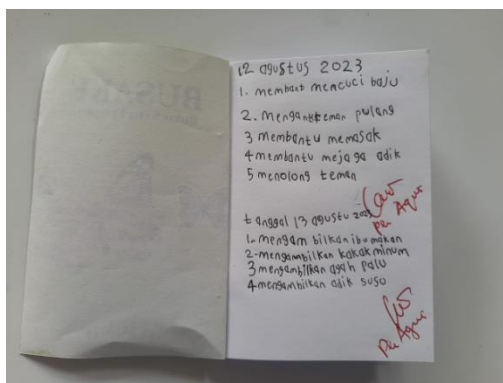 12 agustus 2023
1. membant mencuci baju
2. menganteman pulang
3 membantu memasak
4 membantu mejaga adik
5 menolong teman
tanggal 13 agustu 2023
1. mengambilkan ibu makan
2. mengambilkan kakak minum
3 mengambilkan ayah palu
4 mengambilkan adik susu
Pu Agus
Pu Agus
BUSAKU